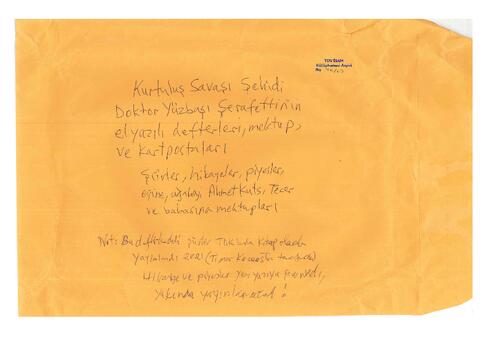 TDV İSAM
Kütüphanesi Arşivi
No
Kurtuluş Savaşı Şehidi
Doktor Yüzbaşı Şerafettinin
elyazılı defterleri, mektup,
ve kartpostalları
Şiirler, hikayeler, piyesler,
eşine, ağabeyi Ahmet Kuts, Tecer
ve babasına mektupları
Not: Bu defterdeki şiirler TDK'unda kitap olarak
Yayınlandı 2021 (Timur Kocaoğlu tarafından)
Hikaye ve piyesler yeni yazıya çevrildi,
yakında yayınlanacak!